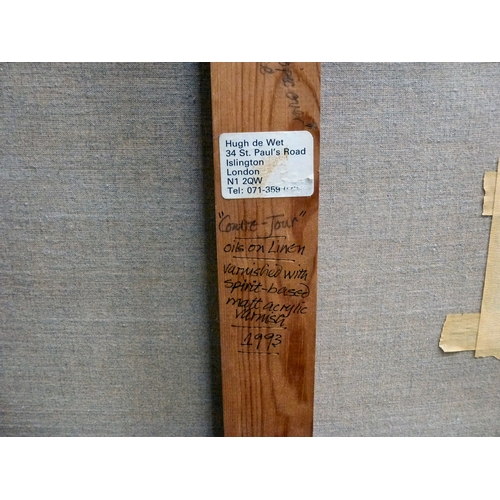 Hugh de Wet
34 St. Paul's Road
Islington
London
N1 2QW
Tel: 071-359
"Contre-Jour"
oils on Linen
varnished with
spirit-based
matt acrylic
varnish.
1993